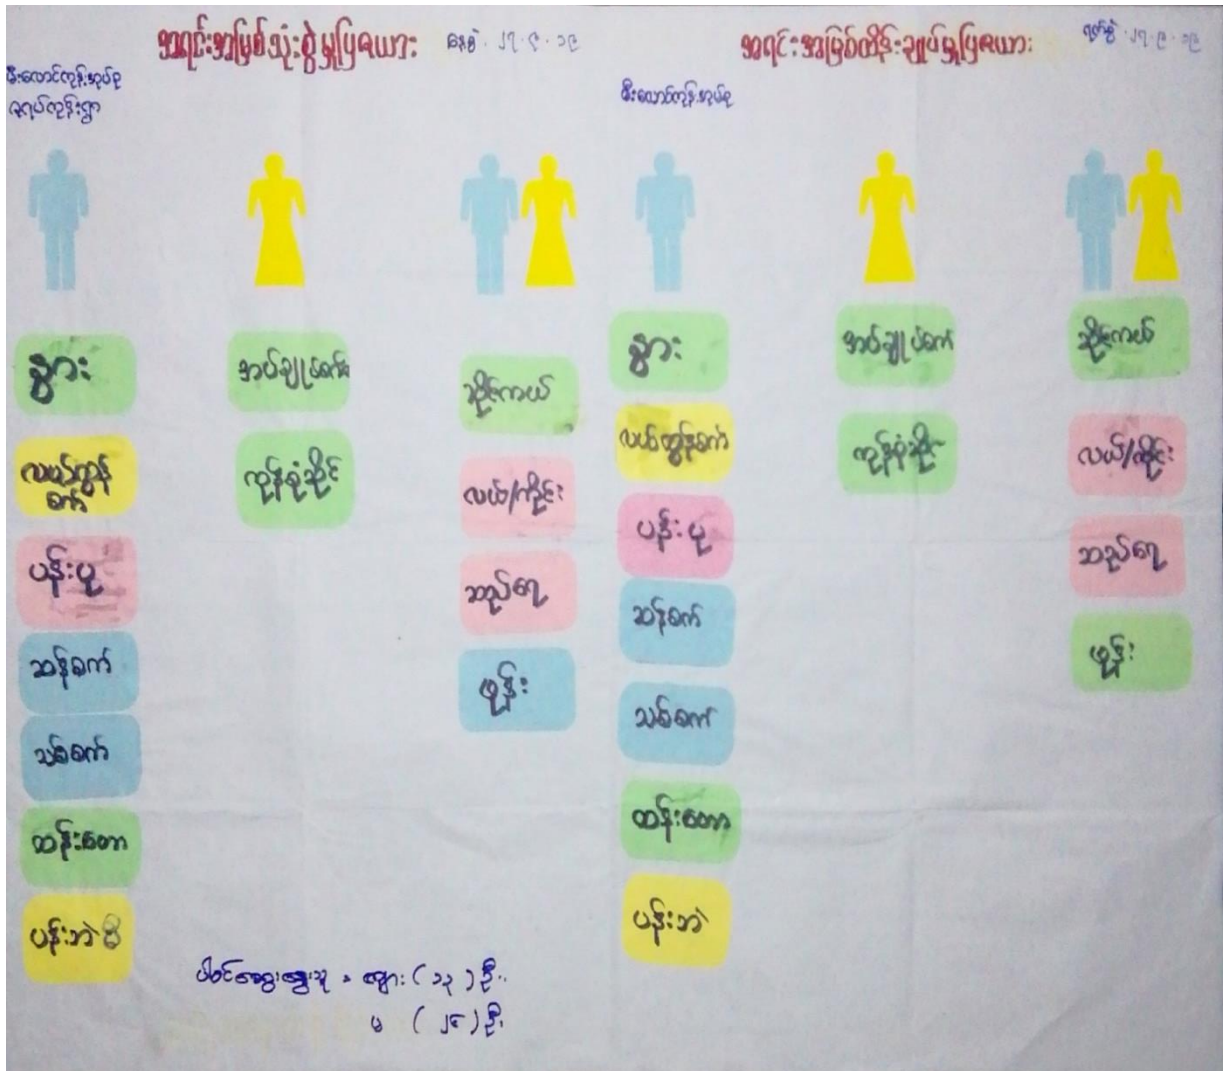 အရင်းအမြစ်သုံးစွဲမှုပြဇယား
နေ့စွဲ - ၂၇.၉.၁၉
မီးလောင်ကုန်းအုပ်စု
နွား
လယ်ထွန်စက်
ပန်းပု
ဆန်စက်
သစ်စက်
ထန်းတော
ပန်းဘဲဖို
အပ်ချုပ်စက်
ကုန်စုံဆိုင်
ဆိုင်ကယ်
လယ်/ကိုင်း
ဆည်ရေ
ဖုန်း
ပါဝင်ဆွေးနွေးသူ = ကျား (၁၃) ဦး
မ (၂၄) ဦး
အရင်းအမြစ်ထိန်းချုပ်မှုပြဇယား
ရက်စွဲ - ၂၇.၉.၁၉
မီးလောင်ကုန်းအုပ်စု
နွား
လယ်ထွန်စက်
ပန်းပု
ဆန်စက်
သစ်စက်
ထန်းတော
ပန်းဘဲ
အပ်ချုပ်စက်
ကုန်စုံဆိုင်
ဆိုင်ကယ်
လယ်/ကိုင်း
ဆည်ရေ
ဖုန်း